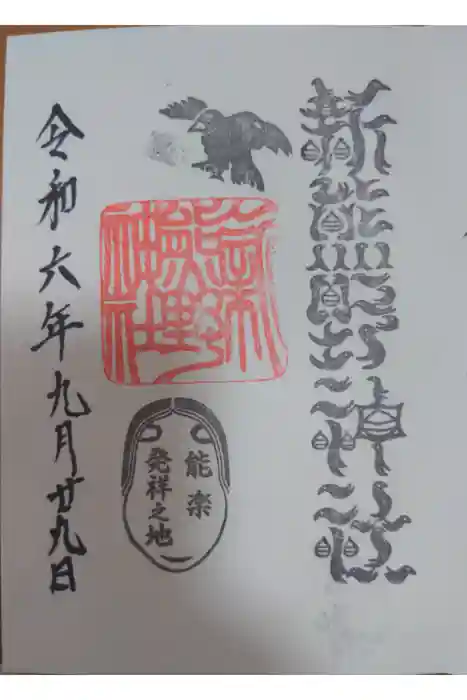 新熊野神社
能楽
発祥之地
令和六年九月廿九日